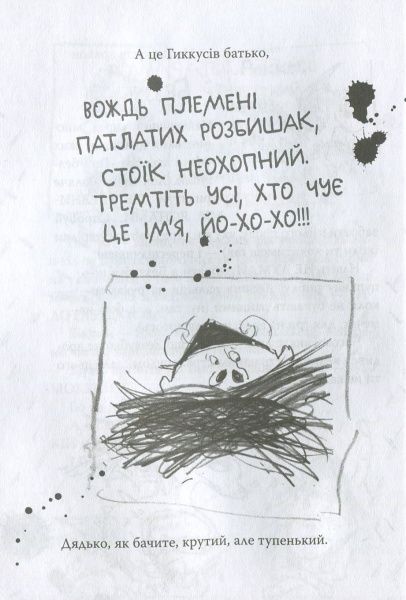 А це Гиккусів батько,
ВОЖДЬ ПЛЕМЕНІ
ПАТЛАТИХ РОЗБИШАК,
СТОЇК НЕОХОПНИЙ.
ТРЕМТІТЬ УСІ, ХТО ЧУЄ
ЦЕ ІМ'Я, ЙО-ХО-ХО!!!
Дядько, як бачите, крутий, але тупенький.